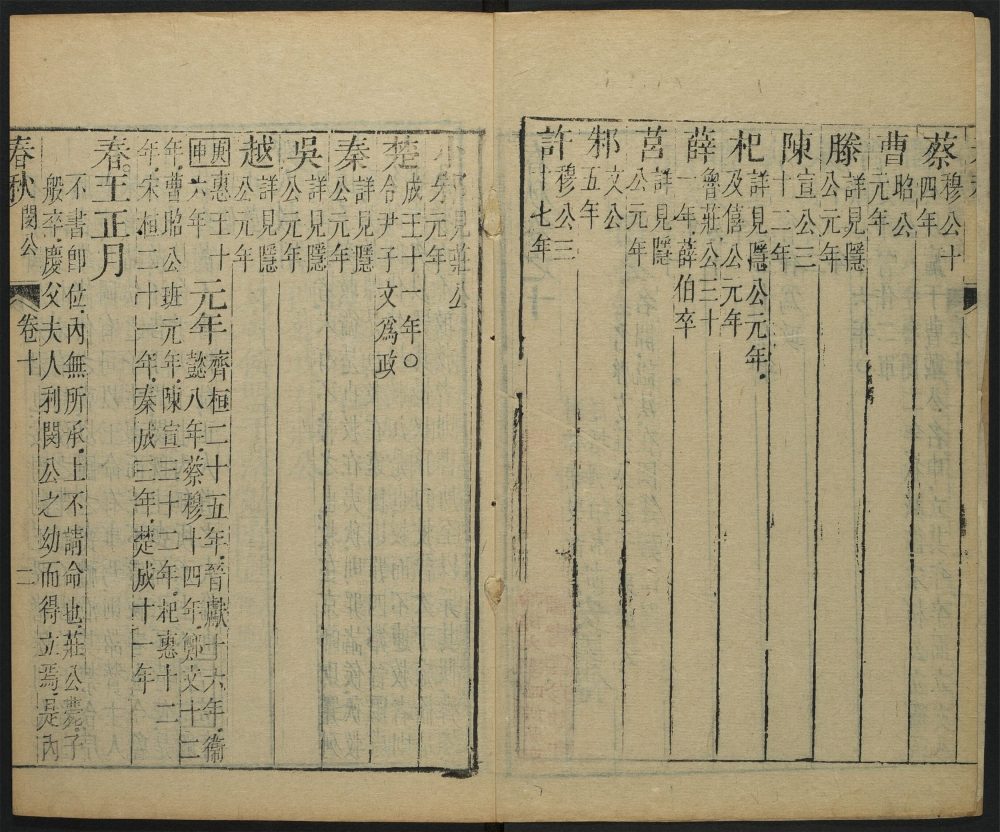 蔡穆公十
四年
曹昭公
元年
滕詳見隱
公元年
陳宣公三
十二年
杞詳見隱公元年
及僖公元年
薛魯莊公三十
一年薛伯卒
莒詳見隱
公元年
邾文公
五年
許穆公三
十七年
小邾見莊公
元年
楚成王十一年○
令尹子文為政
秦詳見隱
公元年
吳詳見隱
公元年
越詳見隱
公元年
庚申惠王十六年元年齊桓二十五年晉獻十六年衞
懿八年蔡穆十四年鄭文十二
年曹昭公班元年陳宣三十二年杞惠十二
年宋桓二十一年秦成三年楚成十一年
春王正月
不書卽位內無所承上不請命也莊公薨子
般卒慶父夫人利閔公之幼而得立焉是內
春秋閔公 卷十 二